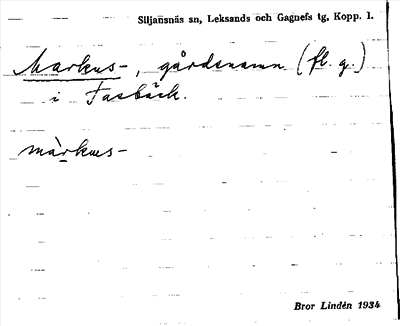 Siljansnäs sn, Leksands och Gagnefs tg, Kopp. l.
Markus-, gårdsnamn (fl. g.)
i Fasbäck.
màrkus-
Bror Lindén 1934